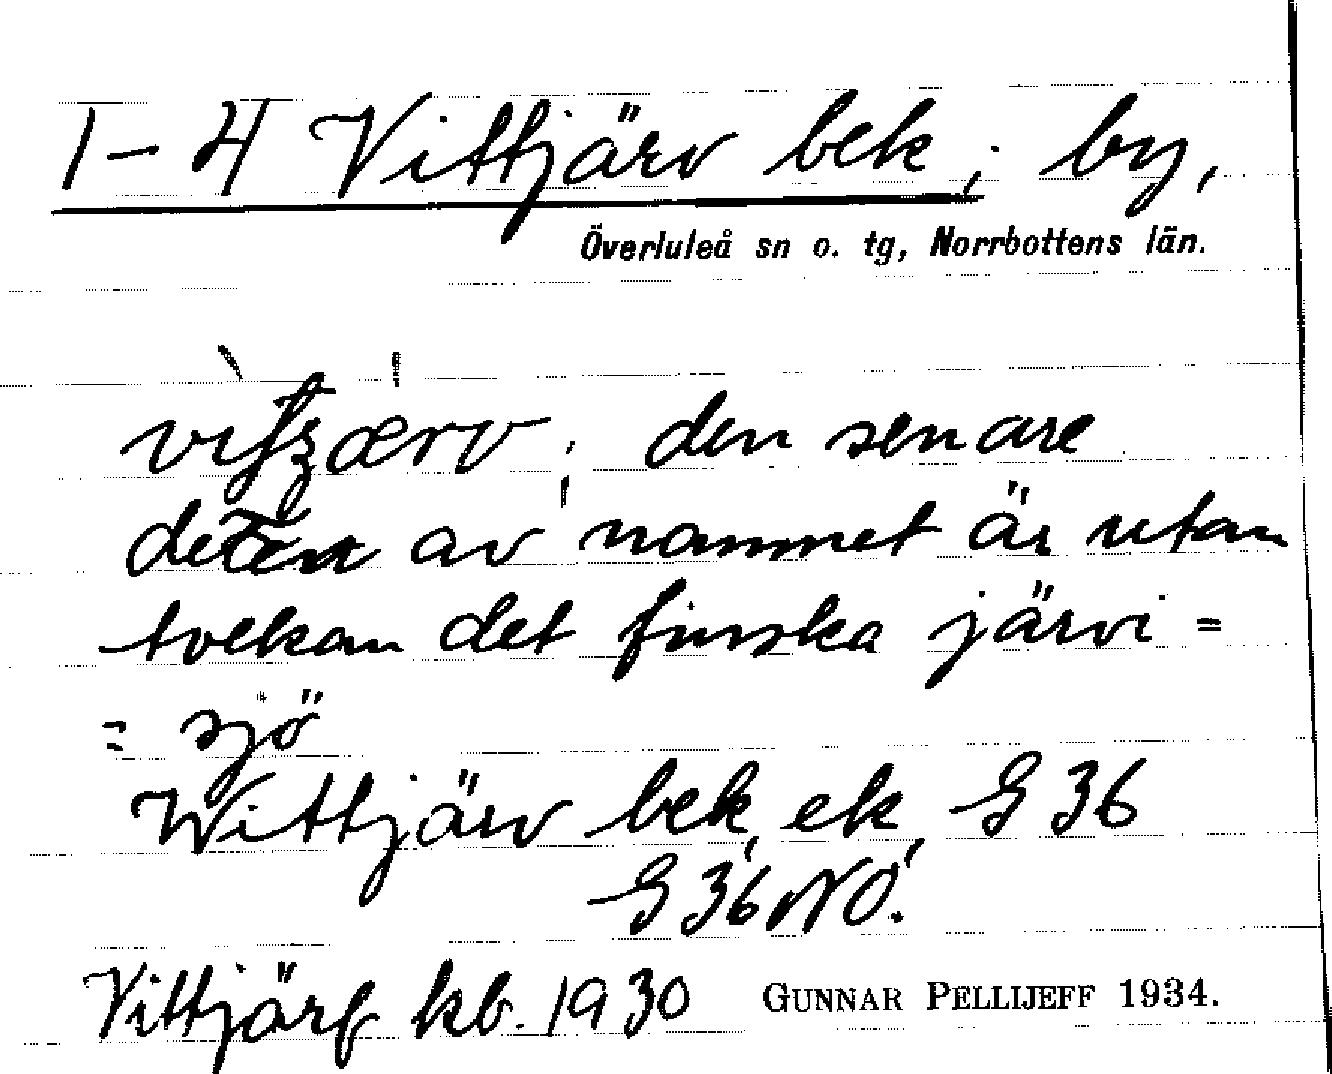 1-4 Vittjärv bek; by,
Överluleå sn o. tg, Norrbottens län.
den senare
delen av namnet är utan
tvekan det finska järvi =
= sjö
Wittjärv bek, ek, G 36
G 36 NO.
Vittjärf kb. 1930 GUNNAR PELLIJEFF 1934.